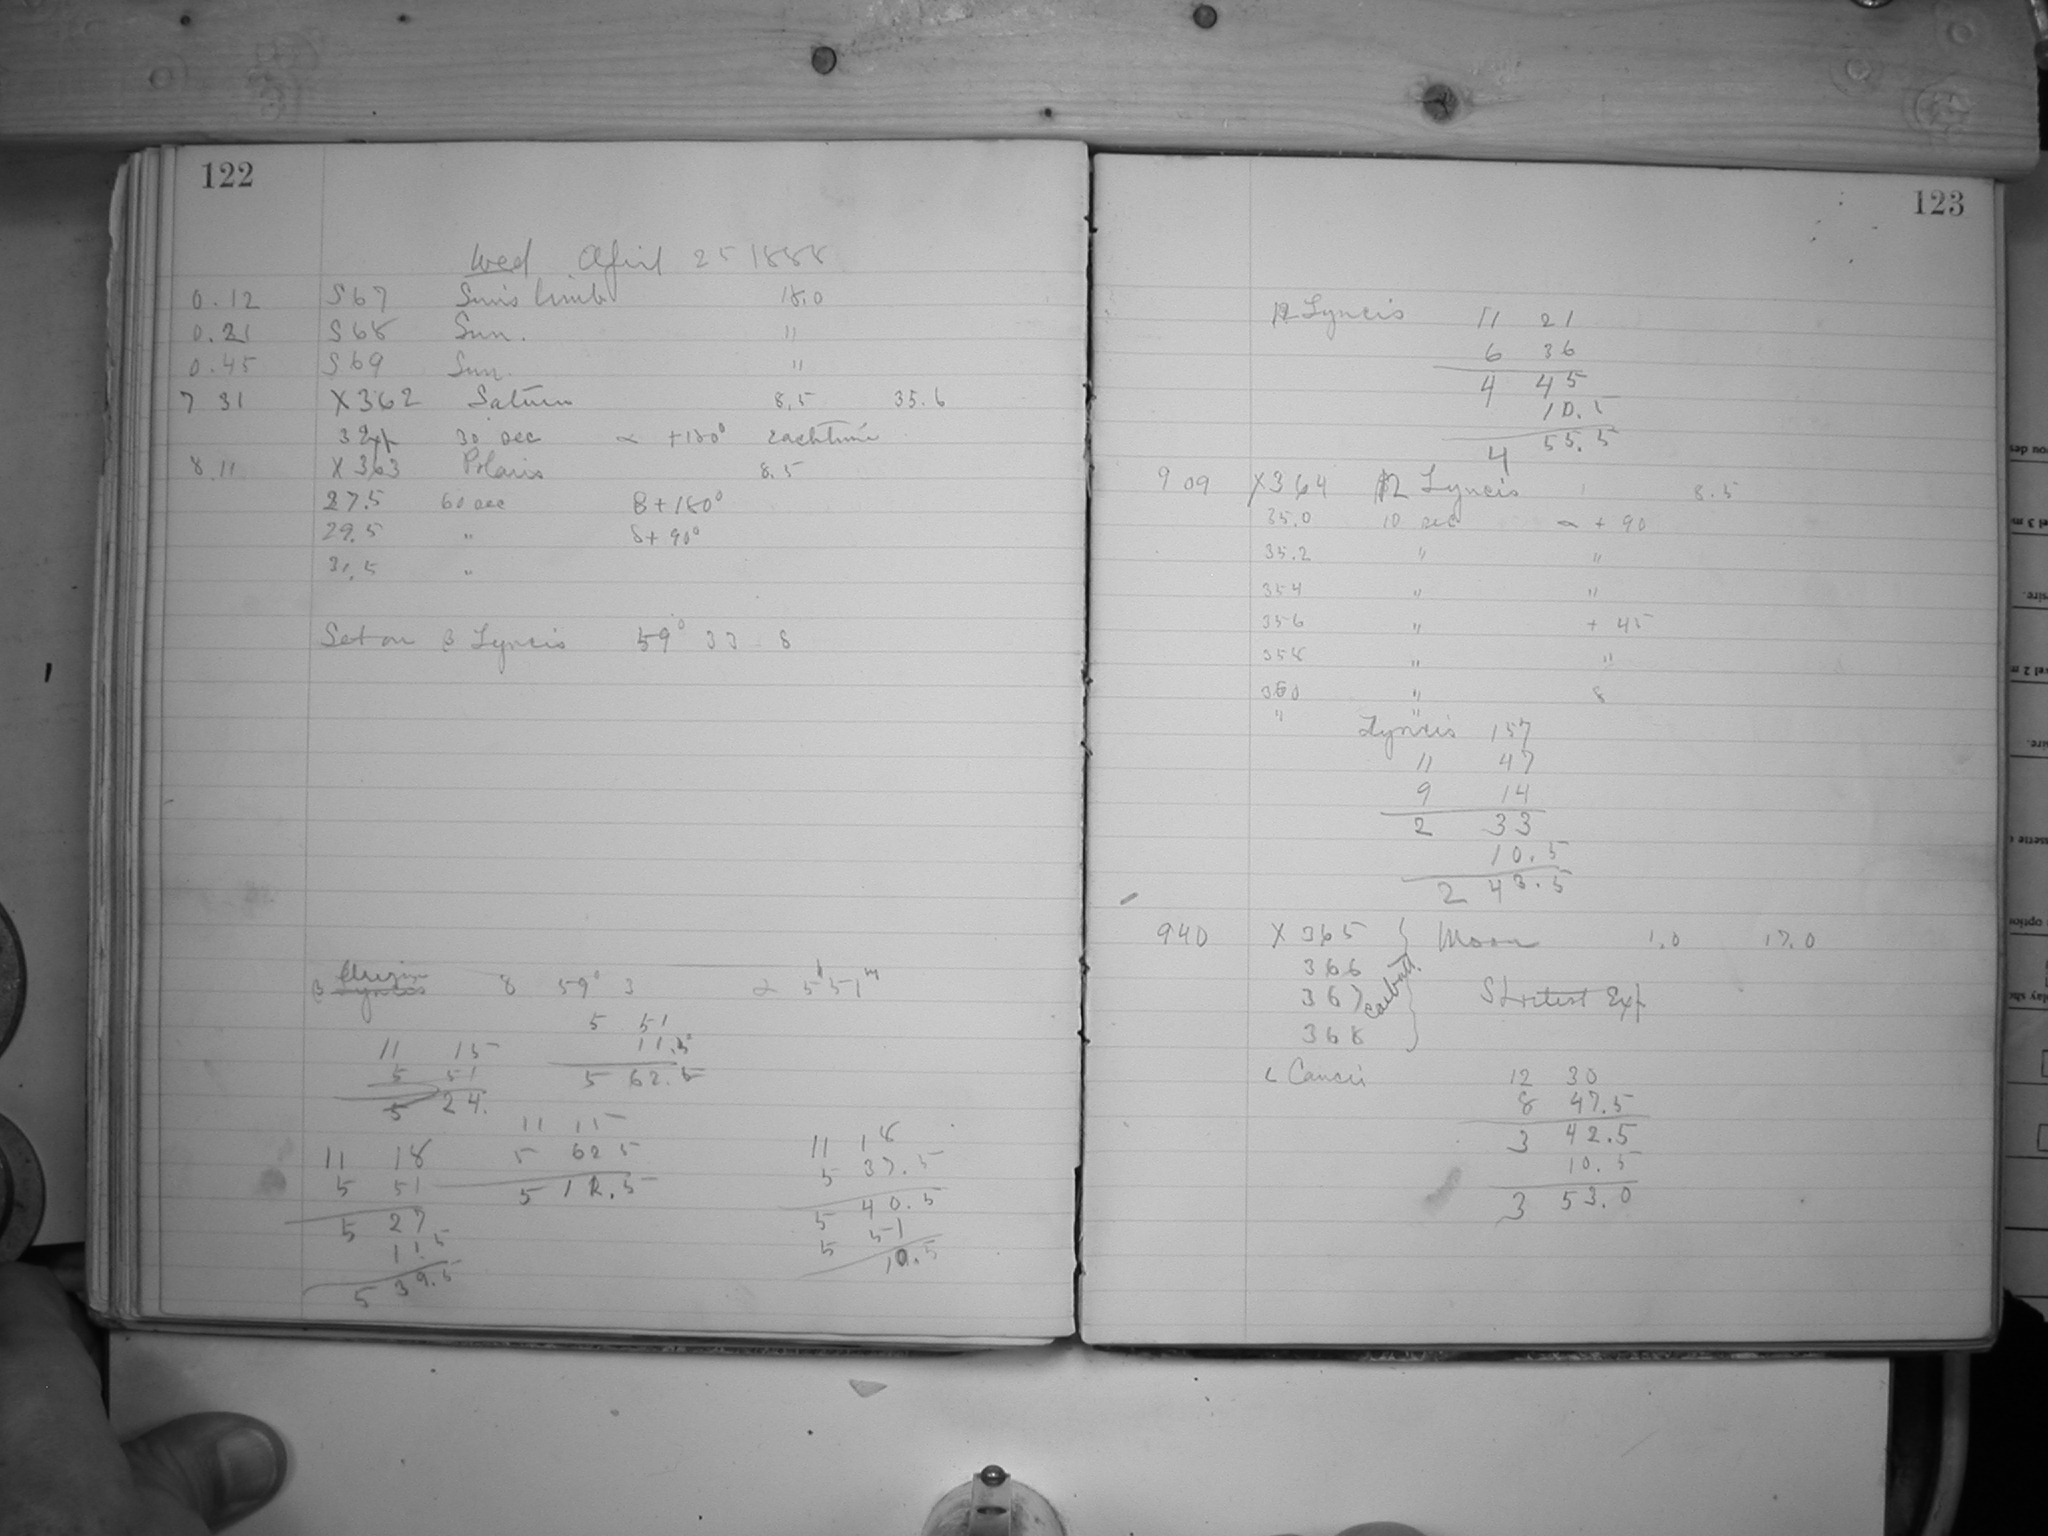 122
Wed April 25 1888
0.12 S67 Sun's limb 18.0
0.21 S68 Sun. "
0.45 S69 Sun. "
7 31 X362 Saturn 8.5 35.6
3 Exp 30 sec α +180° each time
8.11 X363 Polaris 8.5
27.5 60 sec B + 180°
29.5 " δ + 90°
31.5 "
Set on β Lyncis 59° 33 8
β Lyncis Aurigae δ 59° 3 α 5h 51m
5 51
11.5
5 62.5
11 15
5 51
5 24.
11 15
5 62 5
5 12.5
11 18
5 51
5 27
11 5
5 39.5
11 18
5 37.5
5 40.5
5 51
10.5
123
12 Lyncis 11 21
6 36
4 45
10.5
4 55.5
9 09 X364 12 Lyncis 8.5
35.0 10 sec α + 90
35.2 " "
354 " "
356 " + 45
358 " "
360 " 8
" "
Lyncis 157
11 47
9 14
2 33
10.5
2 43.5
940 X 365 Moon 1.0 17.0
366
367 Shortest Exp
368
ι Cancri 12 30
8 47.5
3 42.5
10.5
3 53.0